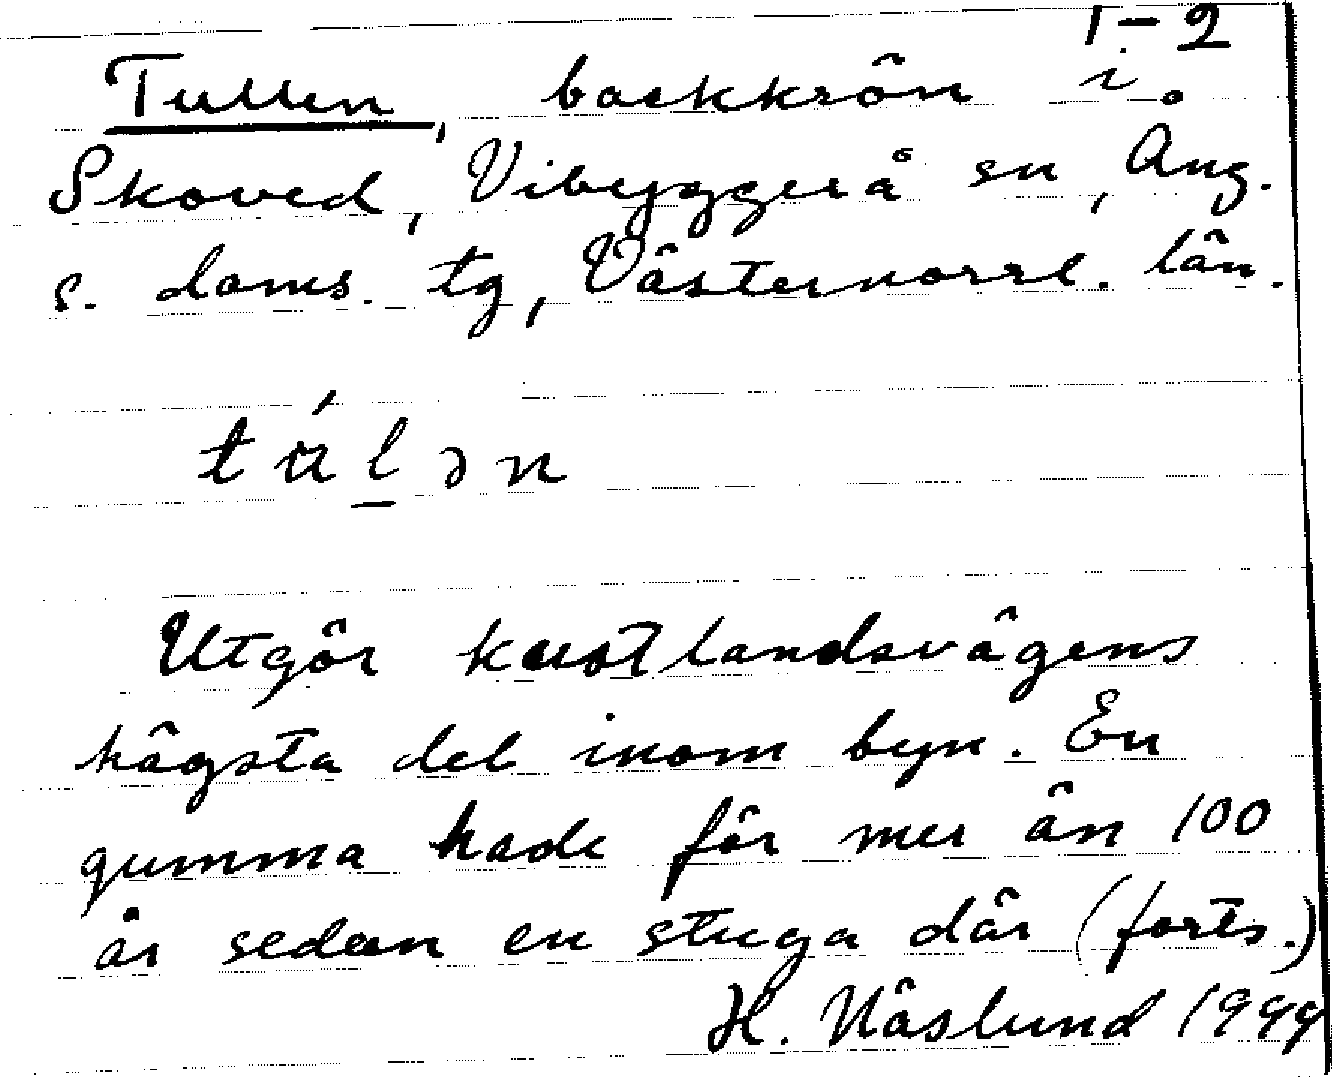 1-2
Tullen, backkrön i
Skoved, Vibyggerå sn, Ång.
s. doms. tg, Västernorrl. län.
Utgör kustlandsvägens
högsta del inom byn. En
gumma hade för mer än 100
år sedan en stuga där (forts.)
H. Näslund